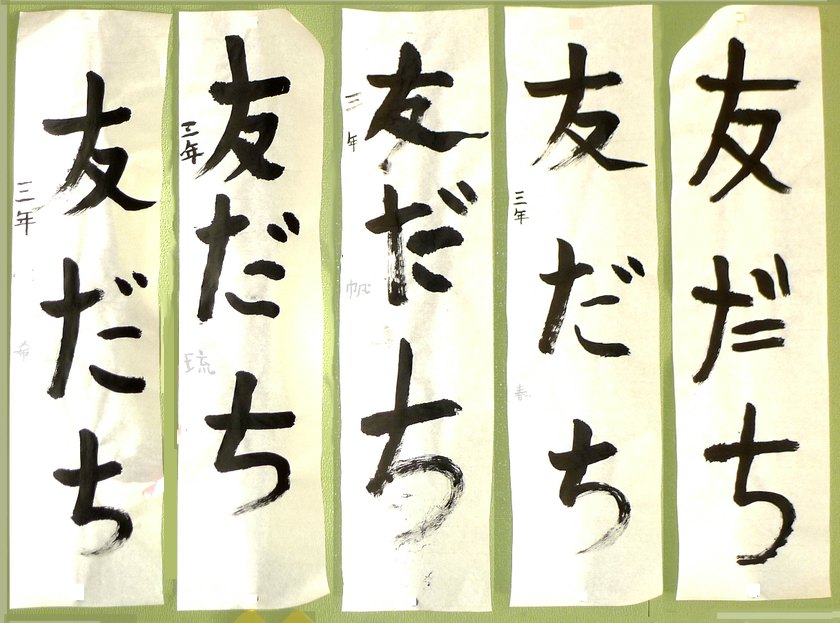 友だち
友だち
三年 春
友だち
三年
友だち
三年 琉
友だち
三年 希